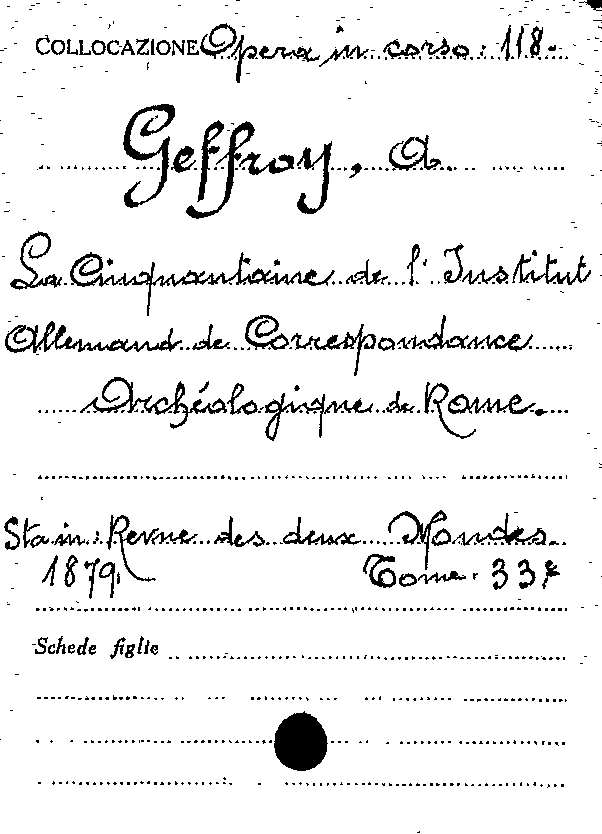 COLLOCAZIONE Opera in corso: 118.
Geffroy, A.
La Cinquantaine de l'Institut
Allemand de Correspondance
Archéologique de Rome.
Sta in: Revue des deux Mondes.
1879. Tome. 33e
Schede figlie